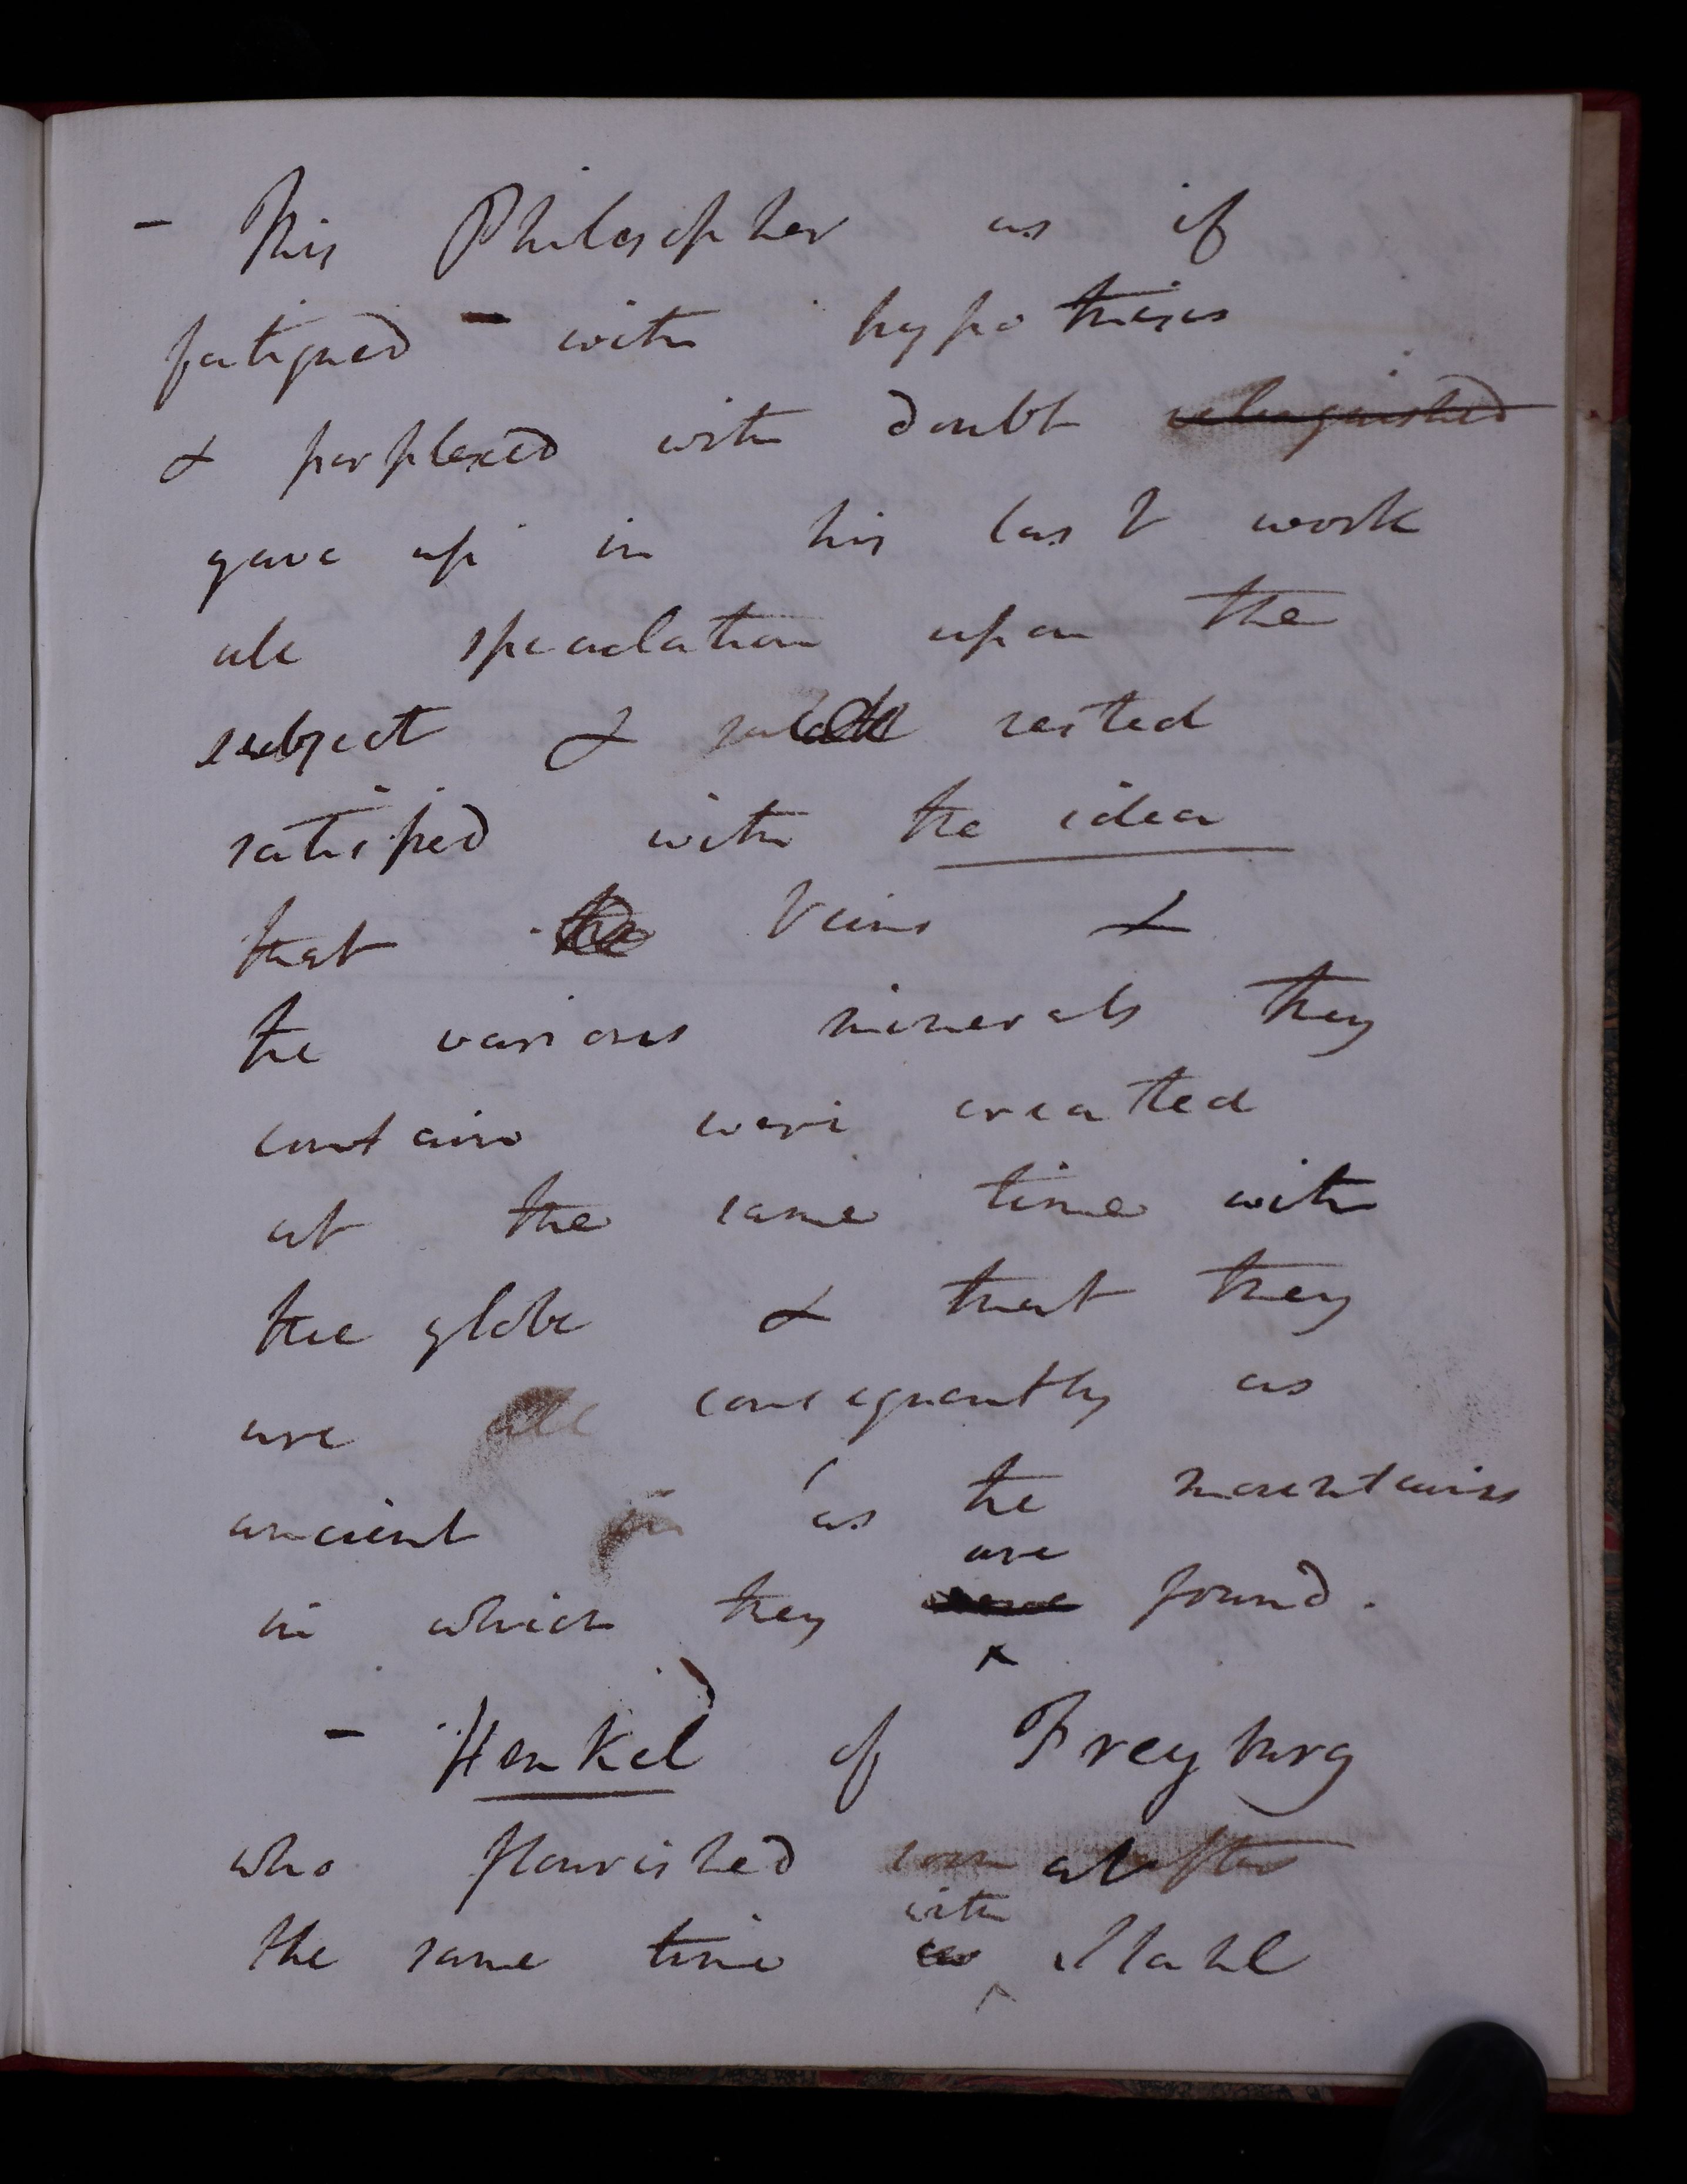 - This Philosopher as if
fatigued - with hypothesis
& perplexed with doubt relinquished
gave up in his last work
all speculation upon the
subject & rested
satisfied with the idea
that the Veins &
the various minerals they
contain were created
at the same time with
the globe & that they
are all consequently as
ancient as the mountains
are
in which they were found.
- Henkel of Freyburg
who flourished soon at after
with
the same time as Stahl